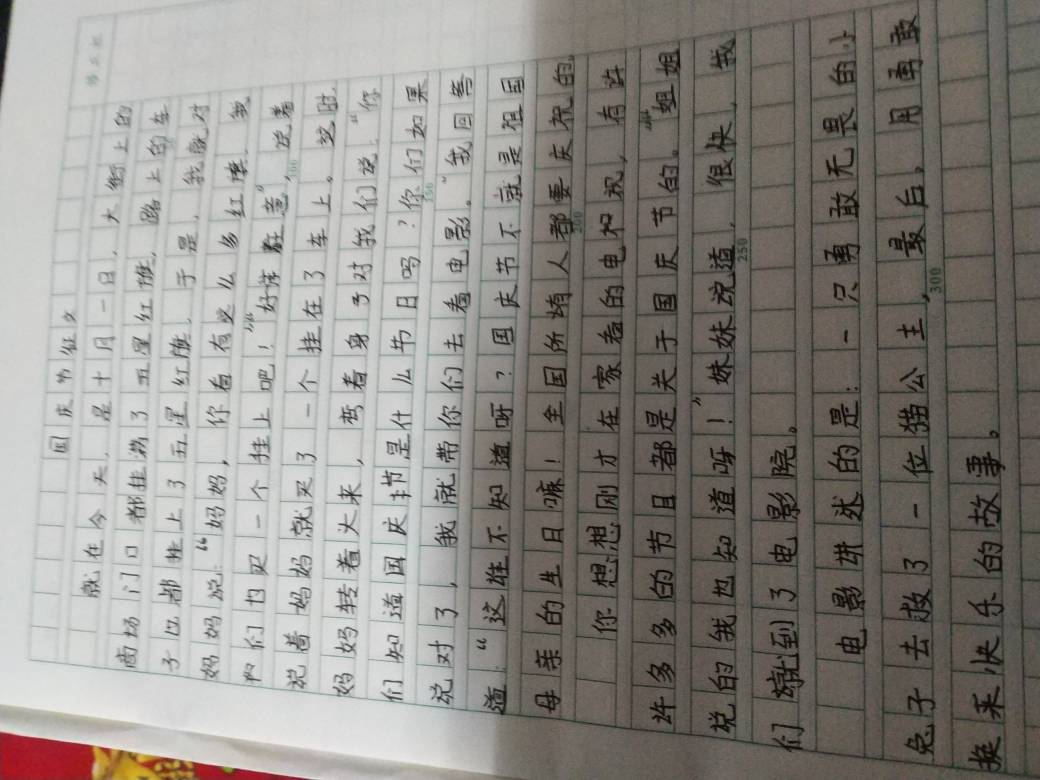 国庆节征文
就在今天,是十月一日,大街上的
商场门口都挂满了五星红旗,路上的车
子也都挂上了五星红旗,于是,我就对
妈妈说:“妈妈,你看有这么多红旗,我
们也买一个挂上吧!”“好主意”,说着
说着妈妈就买了一个挂在了车上。这时
妈妈转着大来,弯着身子对我们说:“你
们知道国庆节是什么节日吗?你们如果
说对了,我就带你们去看电影。”我回答
道:“这谁不知道呀?国庆节不就是祖国
母亲的生日嘛!全国所有人都要庆祝的
你想想刚才在家看的电和视,有许
许多多的节目都是关于国庆节的。”“姐姐
说的我也知道呀!”妹妹说道,很快,我
们就到了电影院。
电影讲述的是:一只勇敢无畏的小
兔子去救了一位猫公主,最后,用勇敢
换来快乐的故事。
100
150
200
250
300